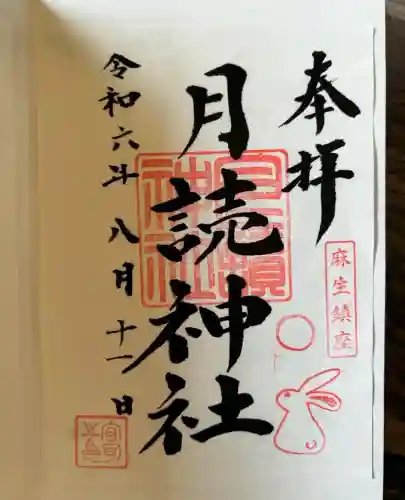 奉拝
麻生鎮座
月読神社
令和六年八月十一日